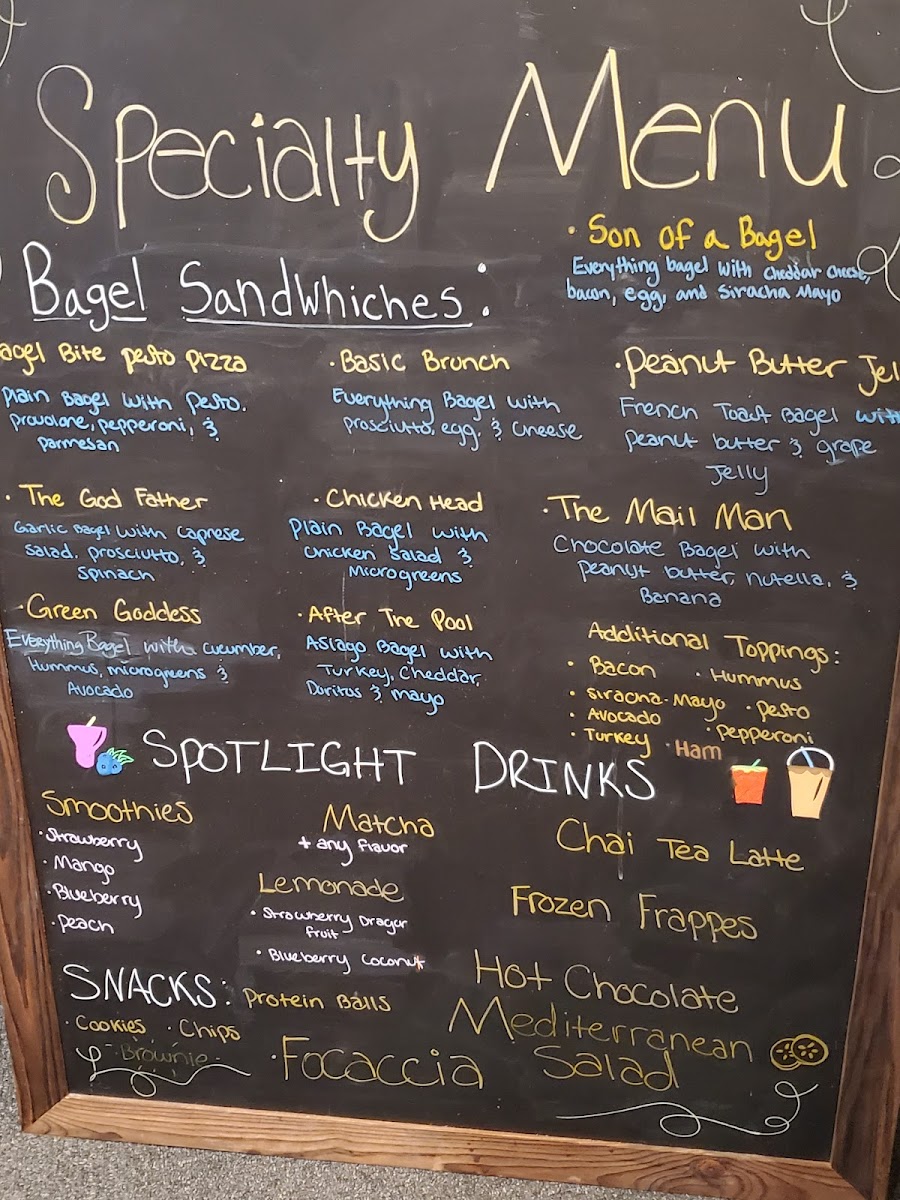 Specialty Menu
· Son of a Bagel
Everything bagel with cheddar cheese,
bacon, egg, and Siracha Mayo
Bagel Sandwhiches:
agel Bite pesto pizza
Plain Bagel with pesto,
provolone, pepperoni, &
parmesan
· Basic Brunch
Everything Bagel with
prosciutto, egg, & cheese
· Peanut Butter Jel
French Toast Bagel with
peanut butter & grape
Jelly
· The God Father
Garlic Bagel with caprese
salad, prosciutto, &
spinach
· Chicken Head
Plain Bagel with
chicken salad &
microgreens
· The Mail Man
Chocolate Bagel with
peanut butter, nutella, &
Banana
· Green Goddess
Everything Bagel with cucumber,
Hummus, microgreens &
Avocado
· After The Pool
Asiago Bagel with
Turkey, Cheddar,
Doritos & mayo
Additional Toppings:
· Bacon · Hummus
· Siracha-Mayo · Pesto
· Avocado · Pepperoni
· Turkey · Ham
SPOTLIGHT DRINKS
Smoothies
· Strawberry
· Mango
· Blueberry
· Peach
Matcha
+ any flavor
Lemonade
· Strawberry Dragon
fruit
· Blueberry Coconut
Chai Tea Latte
Frozen Frappes
Hot Chocolate
SNACKS: Protein Balls
· Cookies · Chips
· Brownie · Focaccia
Mediterranean
Salad